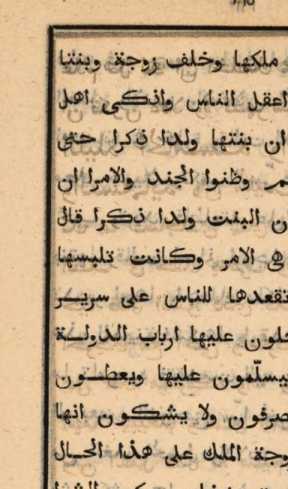 ملكها وخلف زوجة وبنتا
اعقل الناس واذكى اهل
ان بنتها ولدا ذكرا حتى
وظنوا الجند والامرا ان
البنت ولدا ذكرا قال
فى الامر وكانت تلبسها
تقعدها للناس على سرير
عليها ارباب الدولة
يسلّمون عليها ويعطون
ولا يشكون انها
الملك على هذا الحال